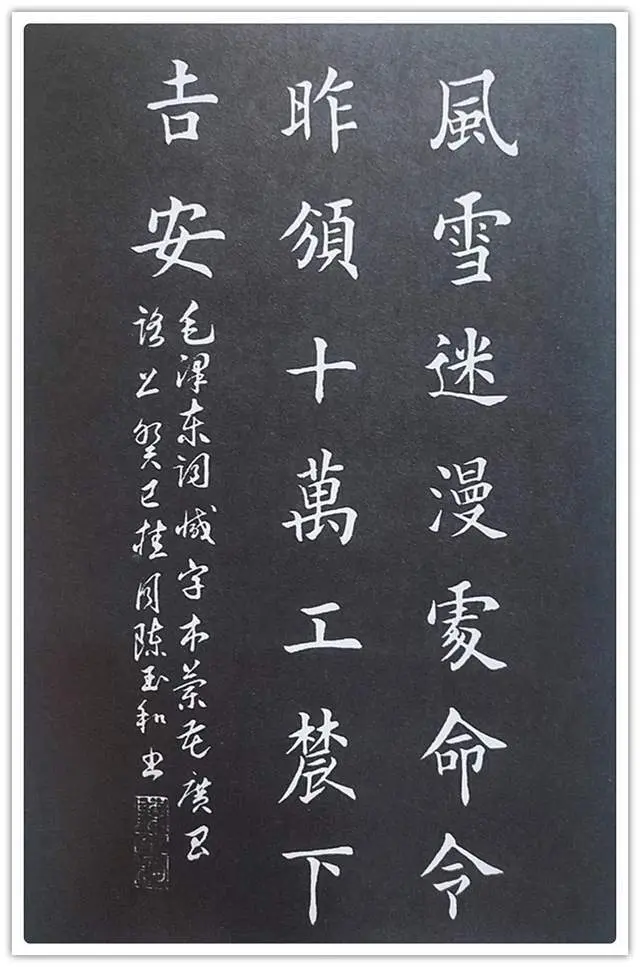 風雪迷漫處命令
昨頒十萬工農下
吉安
毛泽东词减字木蘭花廣昌
路上癸巳桂月陈玉和书